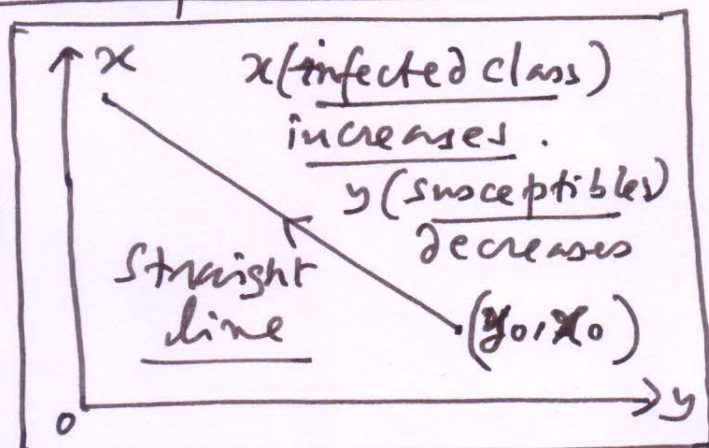 x
x(infected class)
increases.
y(susceptibles)
decreases
straight
line
(y₀, x₀)
0
y